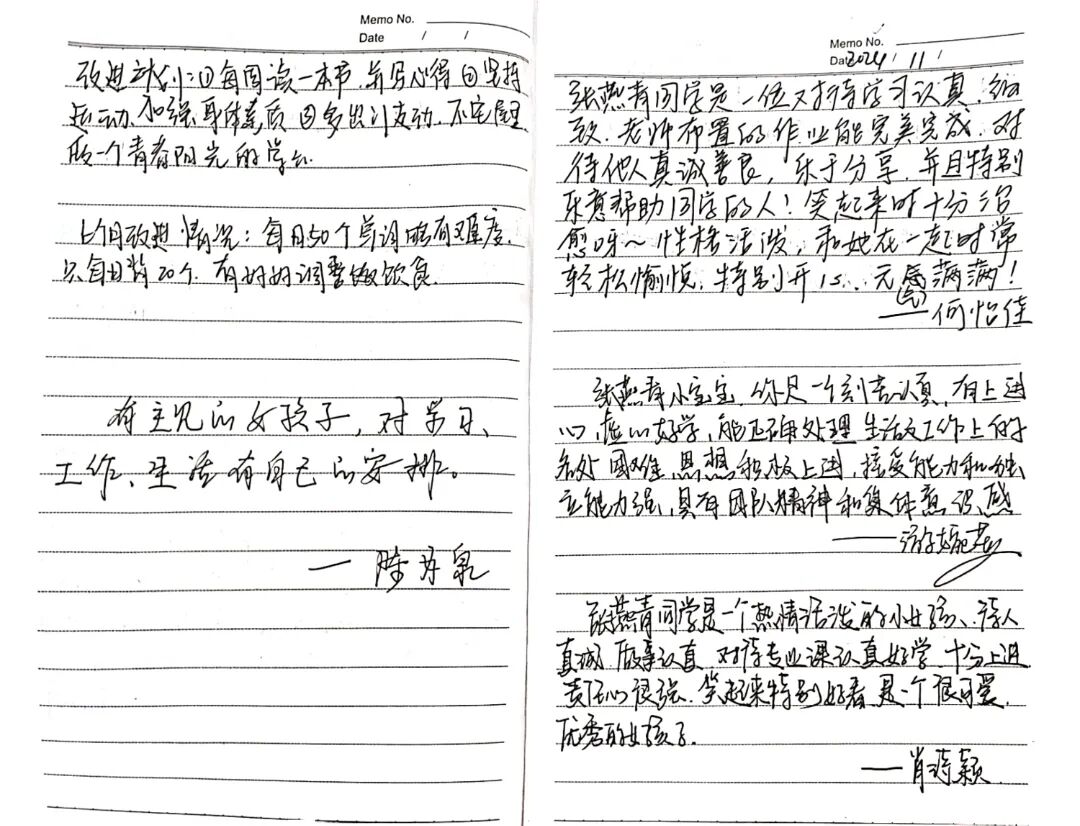 Memo No.
Date / /
改进计划:①每周读一本书,并写心得②坚持
运动,加强身体素质③多出门走动,不宅屋里
做一个青春阳光的学
改进情况:每日50个单词略有难度,
只每日背20个.有好好调整饮食.
有主见的女孩子,对学习、
工作、生活有自己的安排。
Memo No.
Date 2024 / 11 /
张燕青同学是一位对待学习认真、细
致.老师布置的作业能完美完成.对
待他人真诚善良,乐于分享.并且特别
乐意帮助同学的人!笑起来时十分治
愈呀~性格活泼,和她在一起时常
轻松愉悦.特别开心...元气满满!
——何怡佳
张燕青小宝宝,你是一个刻苦认真,有上进
心,虚心好学,能正确处理生活及工作上的
各处困难,思想积极上进,接受能力和独
立能力强,具有团队精神和集体意识感
张燕青同学是一个热情活泼的小女孩、待人
真诚,做事认真.对待专业课认真好学.十分上进
责任心很强.笑起来特别好看.是一个很可爱
优秀的女孩子.
——肖诗颖